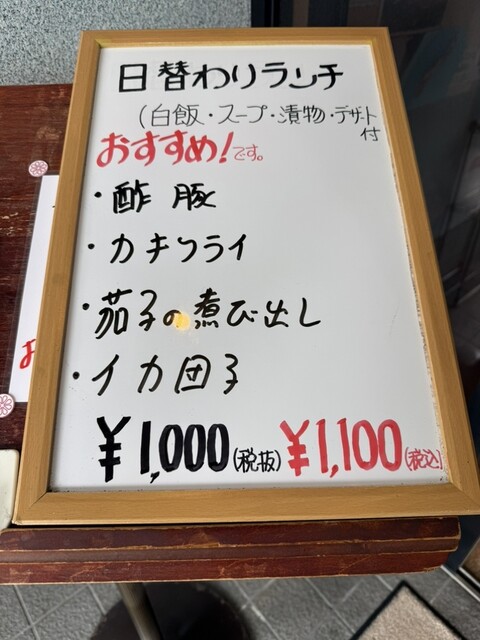 日替わりランチ
(白飯・スープ・漬物・デザート付
おすすめ!です。
・酢豚
・カキフライ
・茄子の煮び出し
・イカ団子
¥1,000(税抜) ¥1,100(税込)